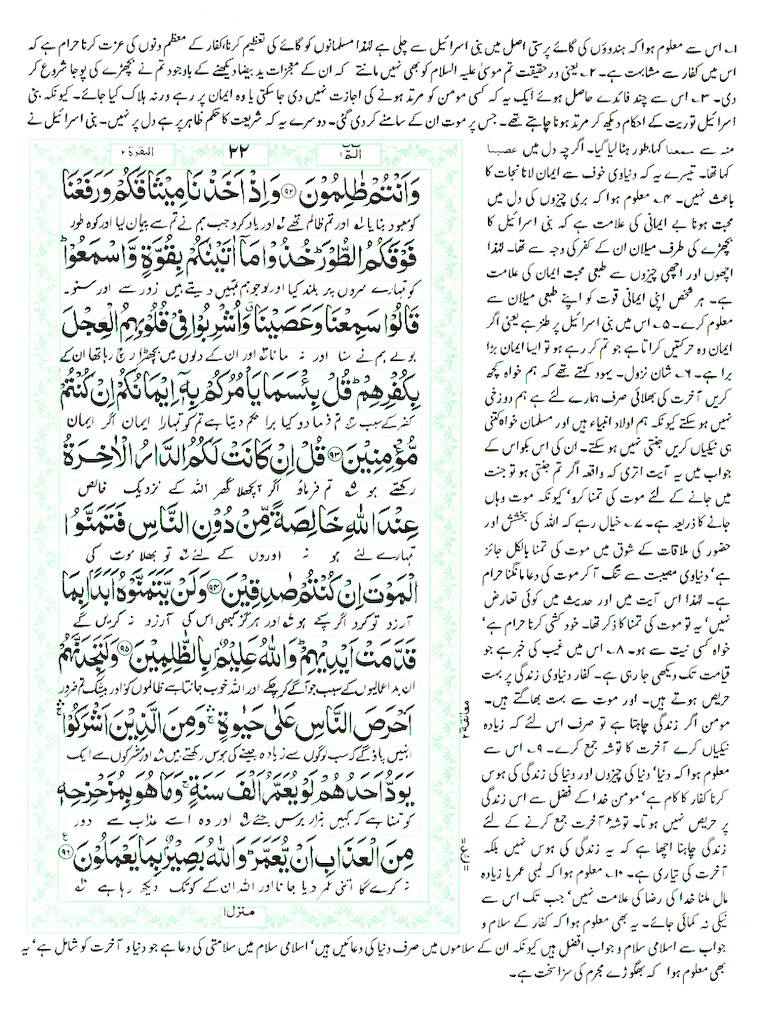 ۱؎ اس سے معلوم ہوا کہ ہندوؤں کی گائے پرستی اصل میں بنی اسرائیل سے چلی ہے لہٰذا مسلمانوں کو گائے کی تعظیم کرنا، کفار کے معظم دنوں کی عزت کرنا حرام ہے کہ
اس میں کفار سے مشابہت ہے۔ ۲؎ یعنی در حقیقت تم موسیٰ علیہ السلام کو بھی نہیں مانتے کہ ان کے معجزات ید بیضا دیکھنے کے باوجود تم نے بچھڑے کی پوجا شروع کر
دی۔ ۳؎ اس سے چند فائدے حاصل ہوئے ایک یہ کہ کسی مومن کو مرتد ہونے کی اجازت نہیں دی جا سکتی یا وہ ایمان پر رہے ورنہ ہلاک کیا جائے۔ کیونکہ بنی
اسرائیل توریت کے احکام دیکھ کر مرتد ہونا چاہتے تھے۔ جس پر موت ان کے سامنے کر دی گئی۔ دوسرے یہ کہ شریعت کا حکم ظاہر پر ہے دل پر نہیں۔ بنی اسرائیل نے
منہ سے سمعنا کہا، طور ہٹا لیا گیا۔ اگرچہ دل میں عصینا
کہا تھا۔ تیسرے یہ کہ دنیاوی خوف سے ایمان لانا نجات کا
باعث نہیں۔ ۴؎ معلوم ہوا کہ بری چیزوں کی دل میں
محبت ہونا بے ایمانی کی علامت ہے کہ بنی اسرائیل کا
بچھڑے کی طرف میلان ان کے کفر کی وجہ سے تھا۔ لہٰذا
اچھوں اور اچھی چیزوں سے طبعی محبت ایمان کی علامت
ہے۔ ہر شخص اپنی ایمانی قوت کو اپنے طبعی میلان سے
معلوم کرے۔ ۵؎ اس میں بنی اسرائیل پر طنز ہے یعنی اگر
ایمان وہ حرکتیں کراتا ہے جو تم کر رہے ہو تو ایسا ایمان بڑا
برا ہے۔ ۶؎ شان نزول۔ یہود کہتے تھے کہ ہم خواہ کچھ
کریں آخرت کی بھلائی صرف ہمارے لئے ہے ہم دوزخی
نہیں ہو سکتے کیونکہ ہم اولاد انبیاء ہیں اور مسلمان خواہ کتنی
ہی نیکیاں کریں جنتی نہیں ہو سکتے۔ ان کی اس بکواس کے
جواب میں یہ آیت اتری کہ واقعہ اگر تم جنتی ہو تو جنت
میں جانے کے لئے موت کی تمنا کرو، کیونکہ موت وہاں
جانے کا ذریعہ ہے۔ ۷؎ خیال رہے کہ اللہ کی بخشش اور
حضور کی ملاقات کے شوق میں موت کی تمنا بالکل جائز
ہے، دنیاوی مصیبت سے تنگ آ کر موت کی دعا مانگنا حرام
ہے۔ لہٰذا اس آیت میں اور حدیث میں کوئی تعارض
نہیں، یہ تو موت کی تمنا کا ذکر تھا۔ خود کشی کرنا حرام ہے،
خواہ کسی نیت سے ہو۔ ۸؎ اس میں غیب کی خبر ہے جو
قیامت تک دیکھی جا رہی ہے۔ کفار دنیاوی زندگی پر بہت
حریص ہوتے ہیں۔ اور موت سے بہت بھاگتے ہیں۔
مومن اگر زندگی چاہتا ہے تو صرف اس لئے کہ زیادہ
نیکیاں کرے آخرت کا توشہ جمع کرے۔ ۹؎ اس سے
معلوم ہوا کہ دنیا، دنیا کی چیزوں اور دنیا کی زندگی کی ہوس
کرنا کفار کا کام ہے، مومن خدا کے فضل سے اس زندگی
پر حریص نہیں ہوتا۔ توشہ آخرت جمع کرنے کے لئے
زندگی چاہنا اچھا ہے کہ یہ زندگی کی ہوس نہیں بلکہ
آخرت کی تیاری ہے۔ ۱۰؎ معلوم ہوا کہ لمبی عمر یا زیادہ
مال ملنا خدا کی رضا کی علامت نہیں، جب تک اس سے
نیکی نہ کمائی جائے۔ یہ بھی معلوم ہوا کہ کفار کے سلام و
البقرۃ ۲
۲۲
الٓمّٓ ۱
وَاَنْتُمْ ظٰلِمُوْنَ ﴿۹۲﴾ وَاِذْ اَخَذْنَا مِيْثَاقَكُمْ وَرَفَعْنَا
کو معبود بنا لیا اور تم ظالم تھے اور یاد کرو جب ہم نے تم سے پیمان لیا اور کوہ طور
فَوْقَكُمُ الطُّوْرَ ؕ خُذُوْا مَاۤ اٰتَيْنٰكُمْ بِقُوَّةٍ وَّاسْمَعُوْا ؕ
کو تمہارے سروں پر بلند کیا اور لو جو ہم تمہیں دیتے ہیں زور سے اور سنو۔
قَالُوْا سَمِعْنَا وَعَصَيْنَا ۗ وَاُشْرِبُوْا فِيْ قُلُوْبِهِمُ الْعِجْلَ
بولے ہم نے سنا اور نہ مانا اور ان کے دلوں میں بچھڑا رچ رہا تھا ان کے
بِكُفْرِهِمْ ؕ قُلْ بِئْسَمَا يَاْمُرُكُمْ بِهٖۤ اِيْمَانُكُمْ اِنْ كُنْتُمْ
کفر کے سبب تم فرما دو کیا برا حکم دیتا ہے تم کو تمہارا ایمان اگر ایمان
مُّؤْمِنِيْنَ ﴿۹۳﴾ قُلْ اِنْ كَانَتْ لَكُمُ الدَّارُ الْاٰخِرَةُ
رکھتے ہو تم فرماؤ اگر پچھلا گھر اللہ کے نزدیک خالص
عِنْدَ اللّٰهِ خَالِصَةً مِّنْ دُوْنِ النَّاسِ فَتَمَنَّوُا
تمہارے لئے ہو نہ اوروں کے لئے تو بھلا موت کی
الْمَوْتَ اِنْ كُنْتُمْ صٰدِقِيْنَ ﴿۹۴﴾ وَلَنْ يَّتَمَنَّوْهُ اَبَدًۢا بِمَا
آرزو تو کرو اگر سچے ہو اور ہرگز کبھی اس کی آرزو نہ کریں گے
قَدَّمَتْ اَيْدِيْهِمْ ؕ وَاللّٰهُ عَلِيْمٌۢ بِالظّٰلِمِيْنَ ﴿۹۵﴾ وَلَتَجِدَنَّهُمْ
ان بد اعمالیوں کے سبب جو آگے کر چکے اور اللہ خوب جانتا ہے ظالموں کو اور بیشک تم ضرور
اَحْرَصَ النَّاسِ عَلٰى حَيٰوةٍ ۚ وَمِنَ الَّذِيْنَ اَشْرَكُوْا ۚ
انہیں پاؤ گے کہ سب لوگوں سے زیادہ جینے کی ہوس رکھتے ہیں اور مشرکوں سے ایک
يَوَدُّ اَحَدُهُمْ لَوْ يُعَمَّرُ اَلْفَ سَنَةٍ ۚ وَمَا هُوَ بِمُزَحْزِحِهٖ
کو تمنا ہے کہ کہیں ہزار برس جئے اور وہ اسے عذاب سے دور
مِنَ الْعَذَابِ اَنْ يُّعَمَّرَ ؕ وَاللّٰهُ بَصِيْرٌۢ بِمَا يَعْمَلُوْنَ ﴿۹۶﴾
نہ کرے گا اتنی عمر دیا جانا اور اللہ ان کے کوتک دیکھ رہا ہے
منزل ۱
معانقۃ ۲
جواب سے اسلامی سلام و جواب افضل ہیں کیونکہ ان کے سلاموں میں صرف دنیا کی دعائیں ہیں، اسلامی سلام میں سلامتی کی دعا ہے جو دنیا و آخرت کو شامل ہے، یہ
بھی معلوم ہوا کہ بھگوڑے مجرم کی سزا سخت ہے۔